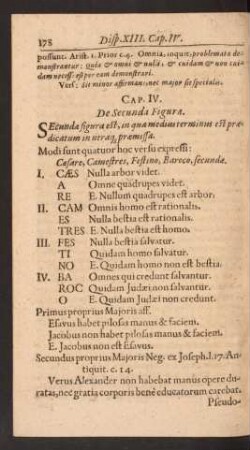 178 Disp. XIII. Cap. IV.
possunt. Arist. 1. Prior c. 4. Omnia, inquit, problemata de-
monstrantur: Quia & omni & nulli, & cuidam & non cui-
dam necesse est per eam demonstrari.
Vers: sit minor affirmans: nec major sit specialis.
CAP. IV.
De Secunda Figura.
SEcunda figura est, in qua medius terminus est præ-
dicatum in utraq; præmissa.
Modi sunt quatuor hoc versu expressi:
Cæsare, Camestres, Festino, Baroco, secundæ.
I. CÆS Nulla arbor videt.
A Omne quadrupes videt.
RE E. Nullum quadrupes est arbor.
II. CAM Omnis homo est rationalis.
ES Nulla bestia est rationalis.
TRES E. Nulla bestia est homo.
III. FES Nulla bestia salvatur.
TI Quidam homo salvatur.
NO E. Quidam homo non est bestia.
IV. BA Omnes qui credunt salvantur.
ROC Quidam Judæi non salvantur.
O E. Quidam Judæi non credunt.
Primus proprius Majoris aff.
Esavus habet pilosas manus & faciem.
Jacobus non habet pilosas manus & faciem.
E. Jacobus non est Esavus.
Secundus proprius Majoris Neg. ex Joseph. l. 17. An-
tiquit. c. 14.
Verus Alexander non habebat manus opere du-
ratas, nec gratia corporis bene educatorum carebat.
Pseudo-